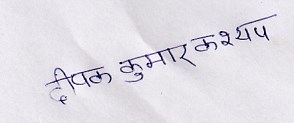 दीपक कुमार कश्यप